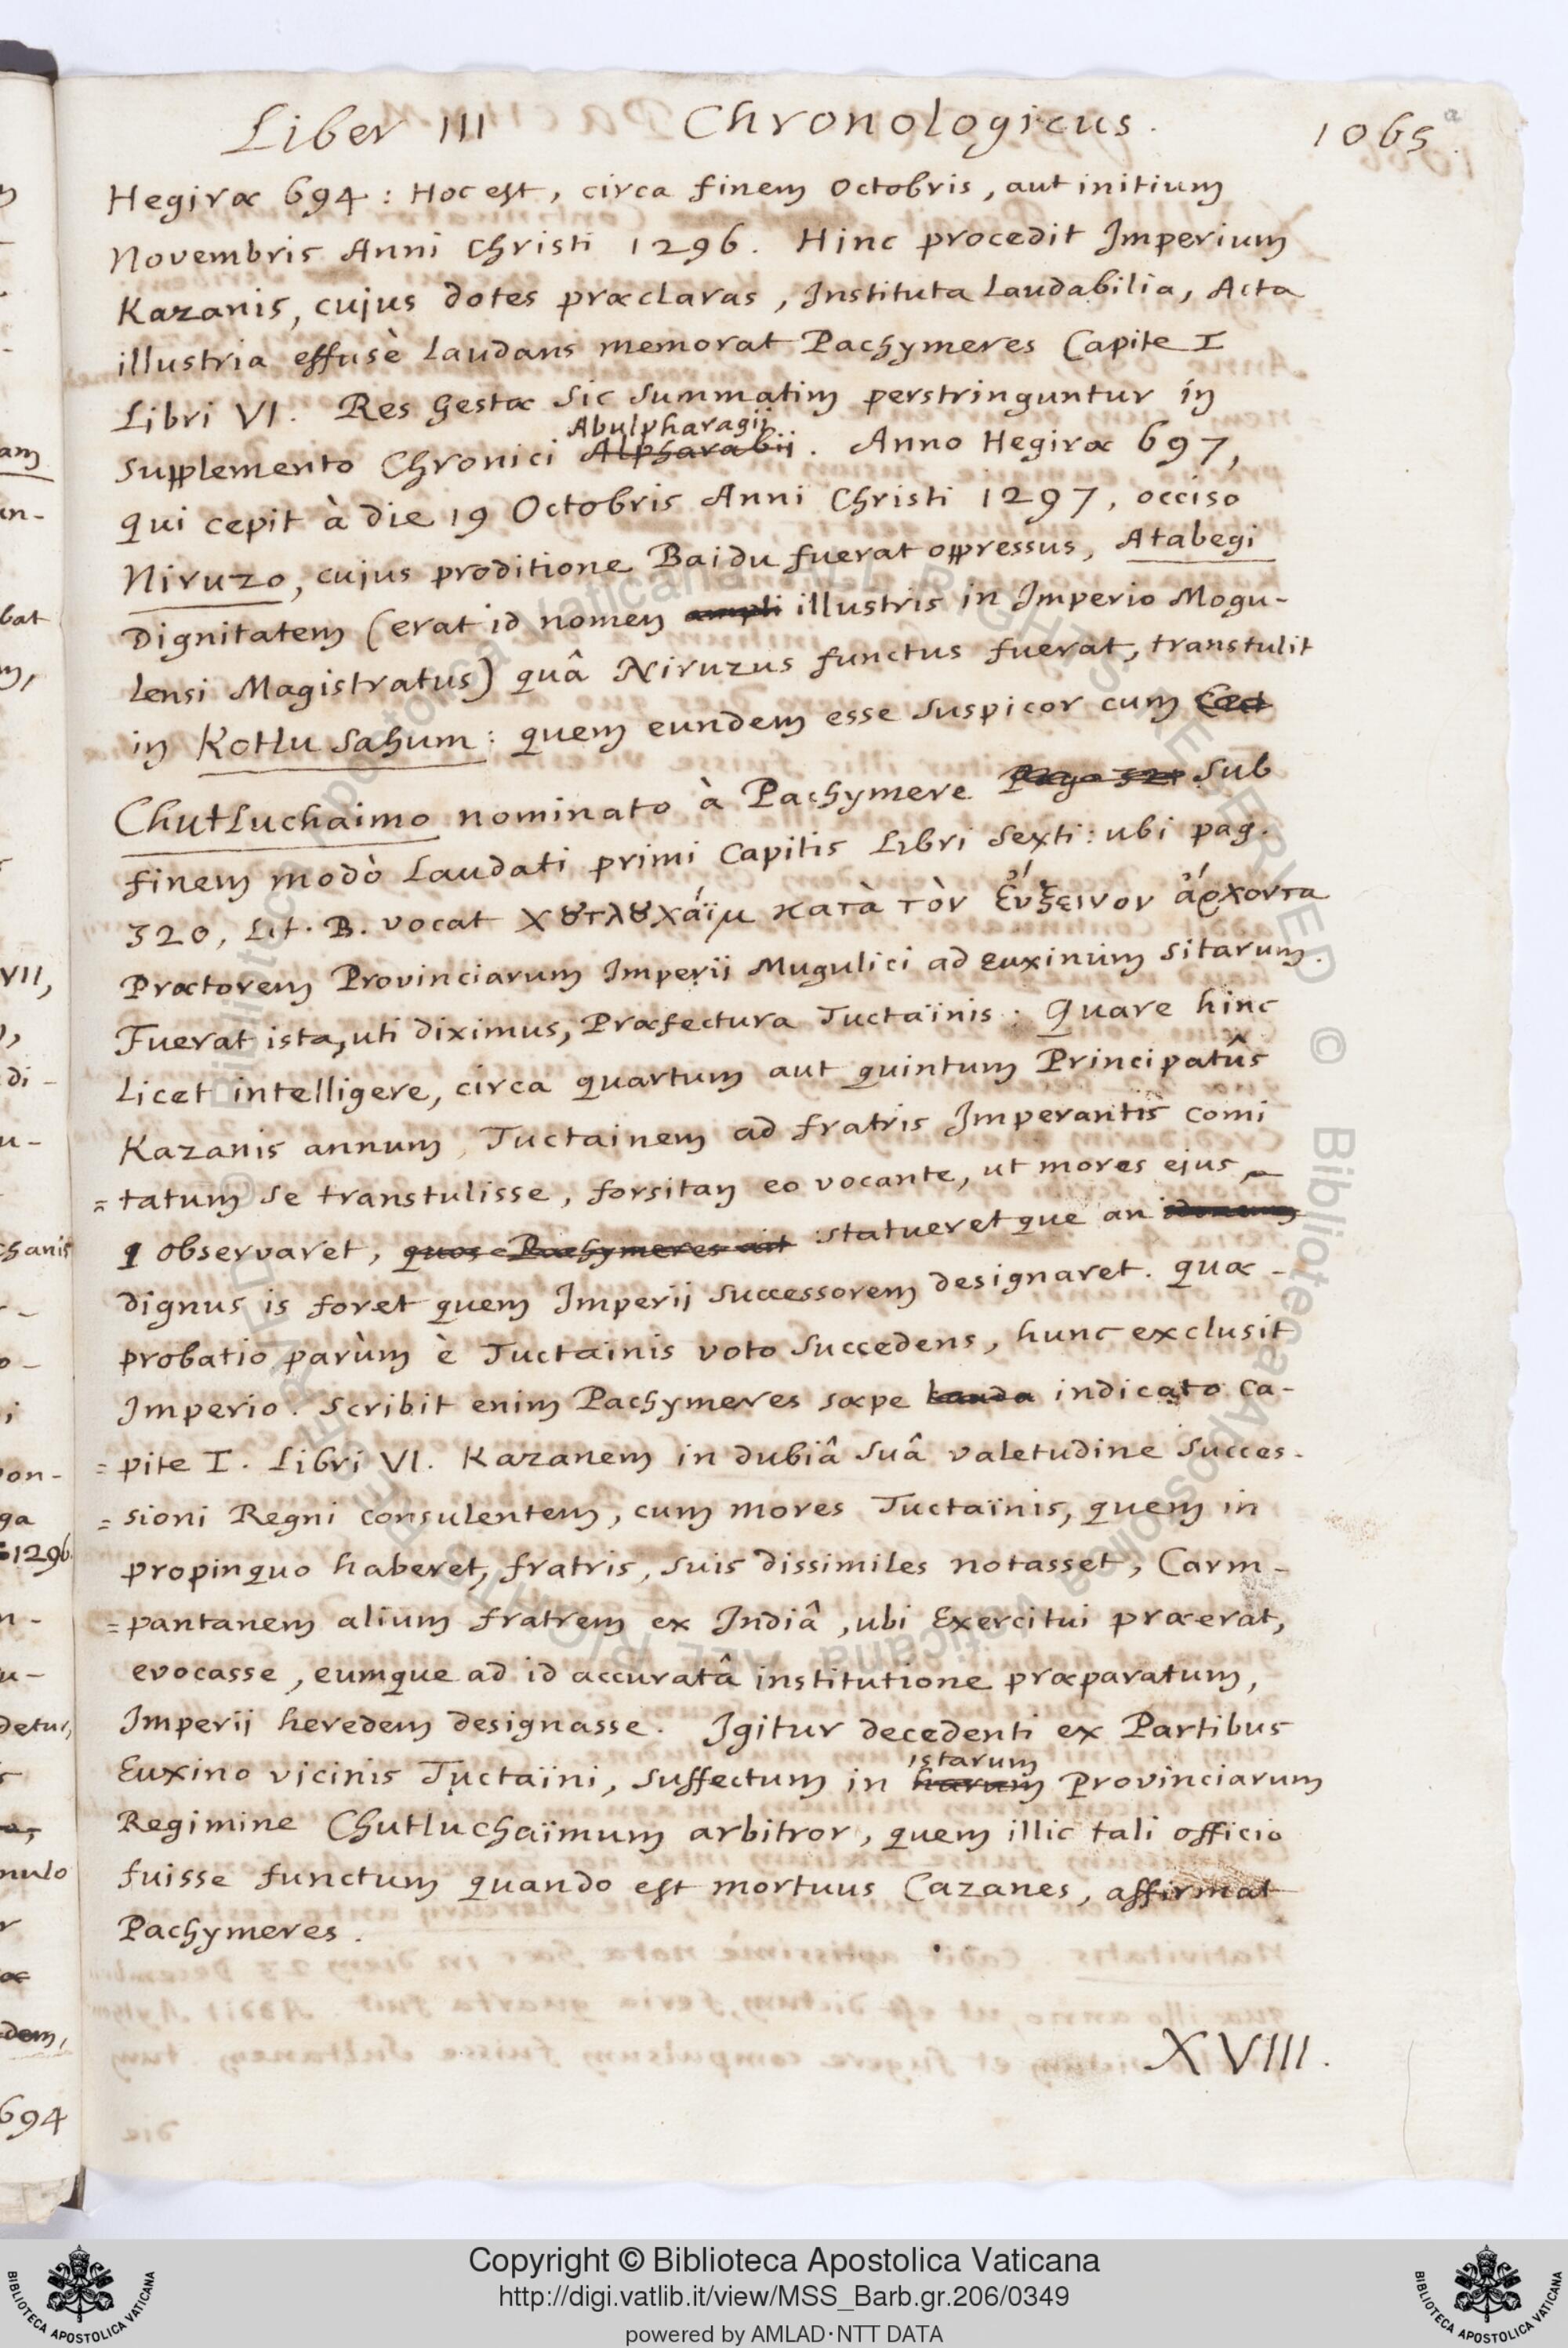 Liber III Chronologicus. 1065.a
Hegiræ 694 : Hoc est, circa finem Octobris, aut initium
Novembris Anni Christi 1296. Hinc procedit Imperium
Kazanis, cujus dotes præclaras, Instituta laudabilia, Acta
illustria effusè laudans memorat Pachymeres Capite I
Libri VI. Res Gestæ sic summatim perstringuntur in
Abulpharagii
supplemento Chronici Alpharabii. Anno Hegiræ 697,
qui cepit à die 19 Octobris Anni Christi 1297, occiso
Niruzo, cujus proditione Baidu fuerat oppressus, Atabegi
Dignitatem (erat id nomen ampli illustris in Imperio Mogu-
lensi Magistratus) quâ Niruzus functus fuerat, transtulit
in Kotlu Sahum: quem eundem esse suspicor cum
Chutluchaimo nominato à Pachymere Pag. 321 sub
finem modò laudati primi Capitis Libri sexti: ubi pag.
320, Lit. B. vocat χȣτλȣχάϊμ κατὰ τὸν Εὔξεινον ἄρχοντα
Prætorem Provinciarum Imperii Mugulici ad euxinum sitarum.
Fuerat ista, uti diximus, Præfectura Tuctaïnis: Quare hinc
licet intelligere, circa quartum aut quintum Principatûs
Kazanis annum, Tuctainem ad fratris Imperantis comi
= tatum se transtulisse, forsitan eo vocante, ut mores ejus
observaret, quos Pachymeres ait statueretque an idoneum
dignus is foret quem Imperii successorem designaret. quæ-
probatio parùm è Tuctainis voto succedens, hunc exclusit
Imperio. Scribit enim Pachymeres sæpe lauda indicato Ca-
= pite I. Libri VI. Kazanem in dubiâ suâ valetudine succes-
= sioni Regni consulentem, cum mores Tuctaïnis, quem in
propinquo haberet, fratris, suis dissimiles notasset, Carm-
= pantanem alium fratrem ex Indiâ, ubi Exercitui præerat,
evocasse, eumque ad id accuratâ institutione præparatum,
Imperii heredem designasse. Igitur decedenti ex Partibus
istarum
Euxino vicinis Tuctaïni, suffectum in harum Provinciarum
Regimine Chutluchaïmum arbitror, quem illic tali officio
fuisse functum quando est mortuus Cazanes, affirmat
Pachymeres.
XVIII.
Copyright © Biblioteca Apostolica Vaticana
http://digi.vatlib.it/view/MSS_Barb.gr.206/0349
powered by AMLAD·NTT DATA
BIBLIOTECA APOSTOLICA VATICANA
BIBLIOTECA APOSTOLICA VATICANA